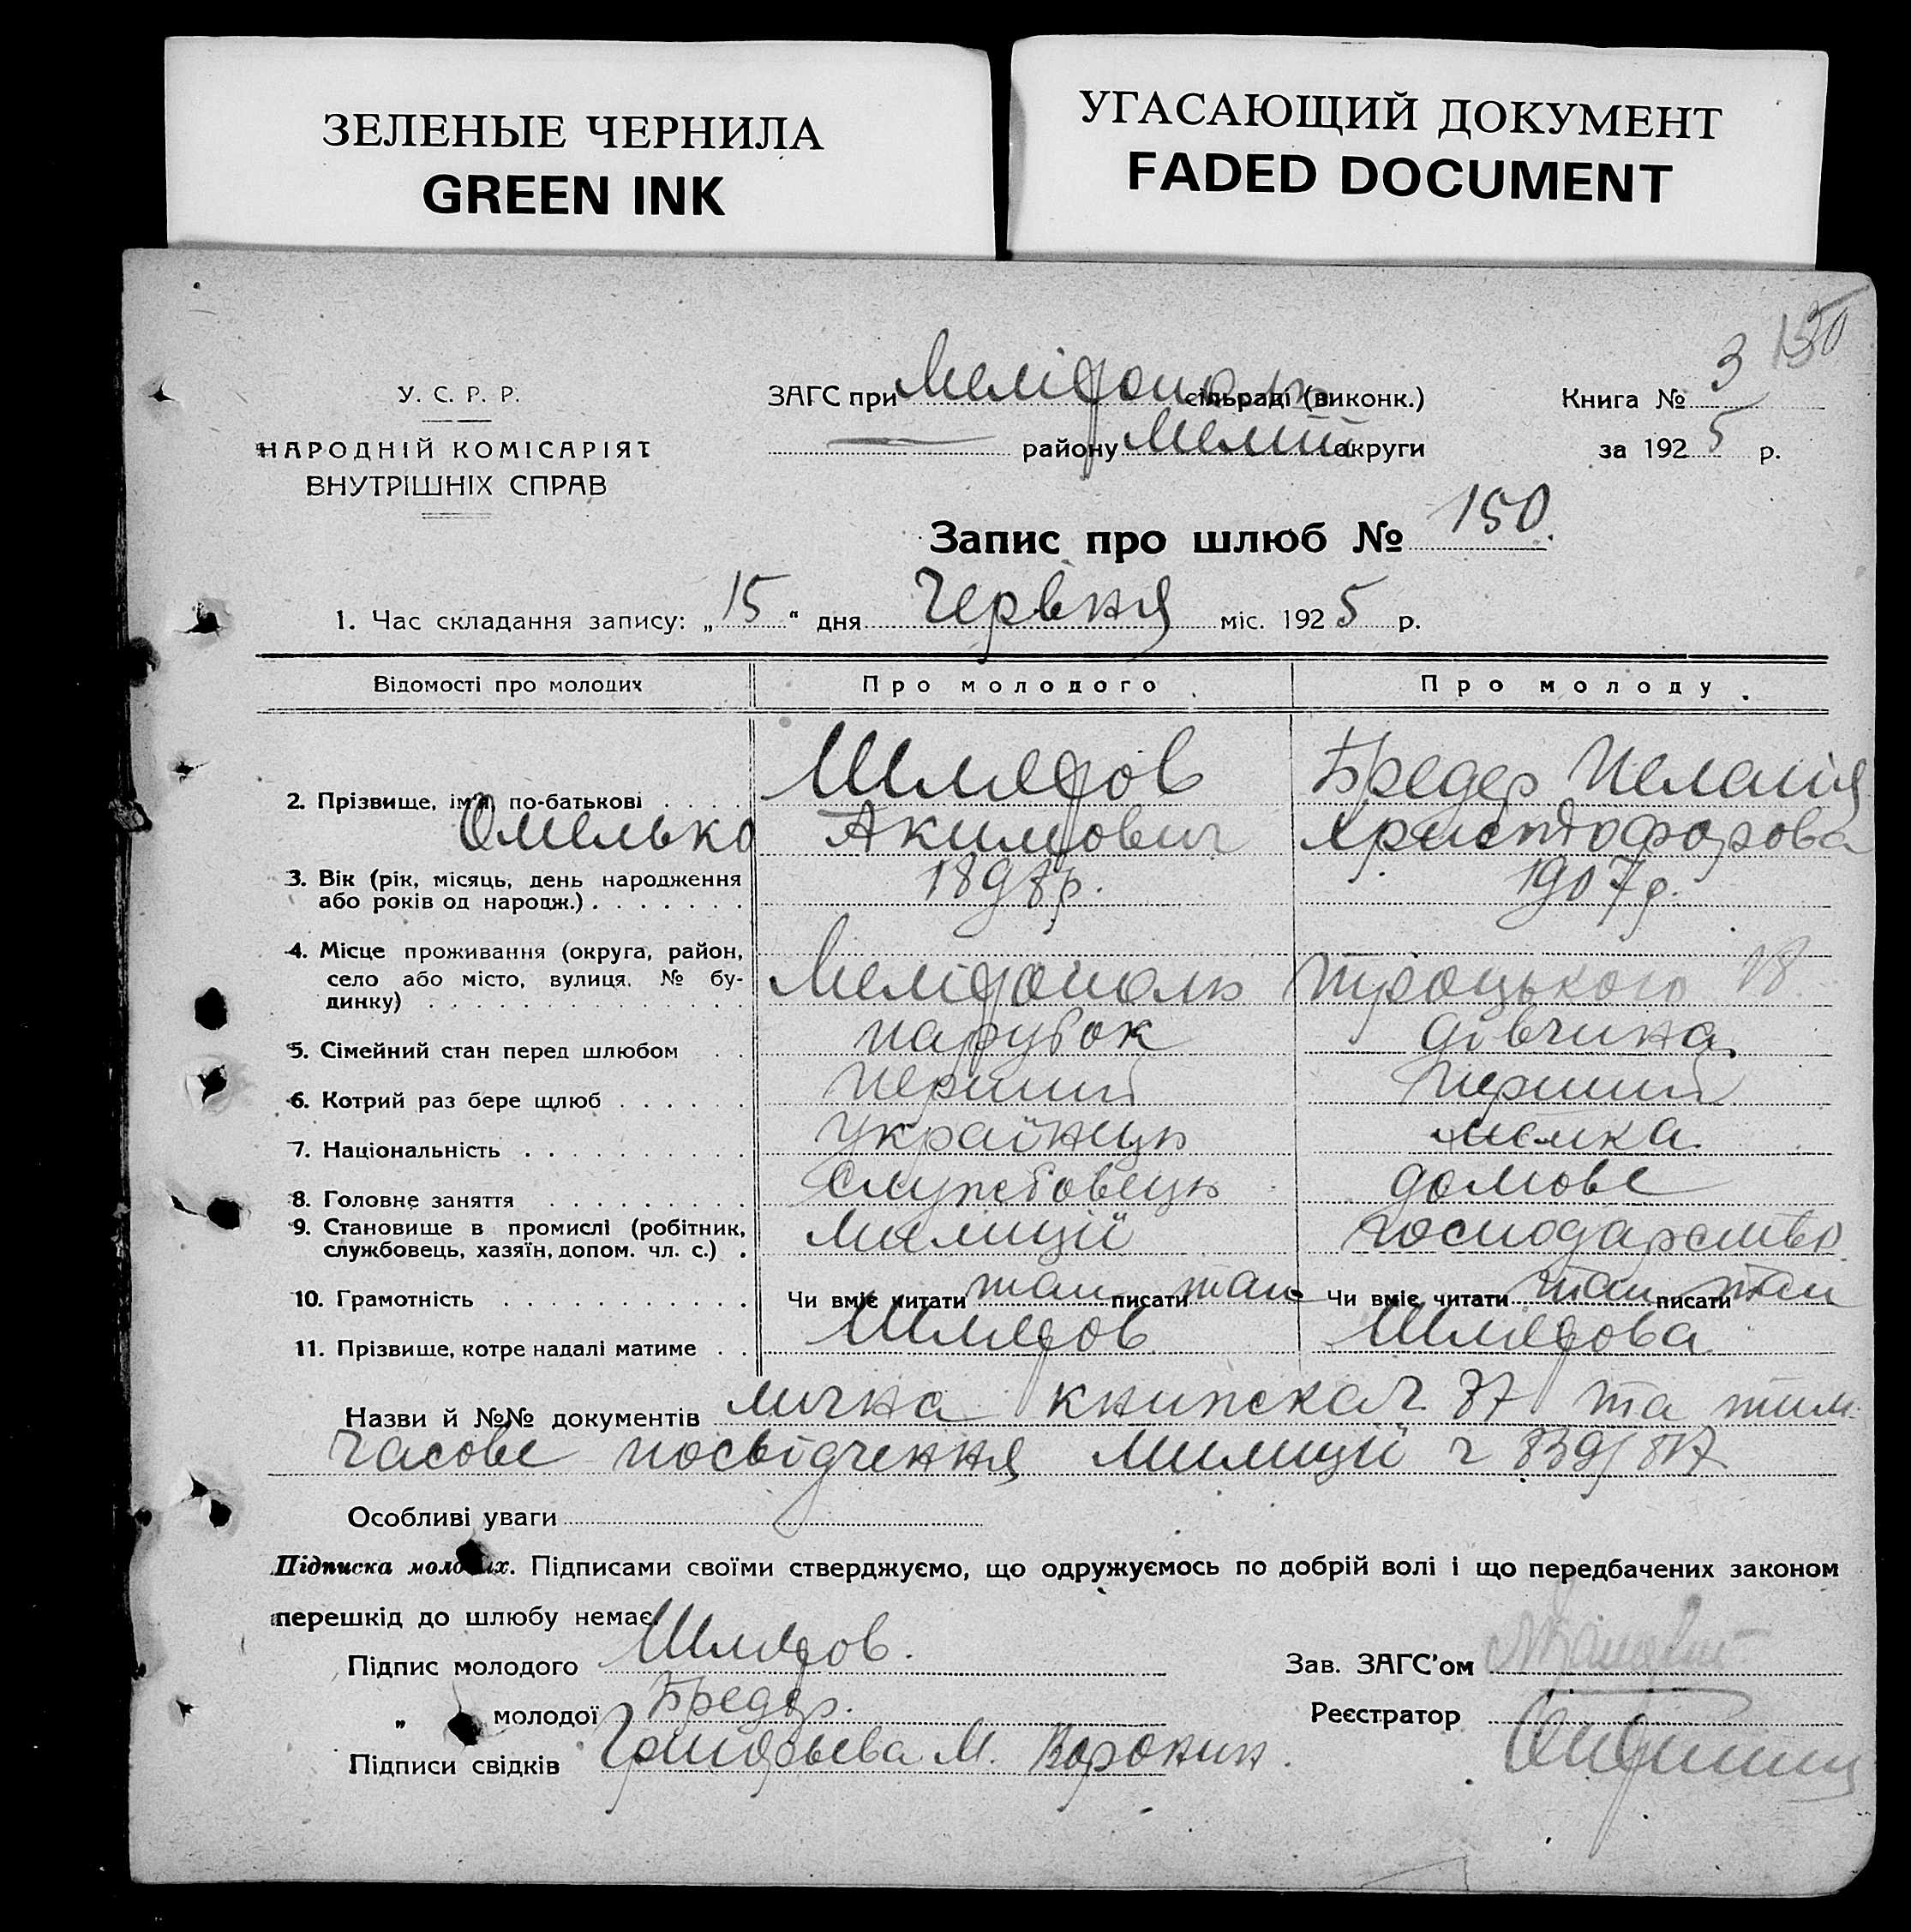 ЗЕЛЕНЫЕ ЧЕРНИЛА
GREEN INK
УГАСАЮЩИЙ ДОКУМЕНТ
FADED DOCUMENT
150
У. С. Р. Р.
НАРОДНІЙ КОМІСАРІЯТ
ВНУТРІШНІХ СПРАВ
ЗАГС при Меліфополь сільраді (виконк.)
району Меліт округи
Книга № 3
за 1925 р.
Запис про шлюб № 150.
1. Час складання запису: „15“ дня Червіня міс. 1925 р.
Відомості про молодих Про молодого Про молоду
2. Прізвище, ім'я, по-батькові Омелько Акимович Бредер Пелагія Христофорова
3. Вік (рік, місяць, день народження або років од народж.) 1898р. 1907р.
4. Місце проживання (округа, район, село або місто, вулиця, № будинку) Меліфополь Троцького 18
5. Сімейний стан перед шлюбом парубок дівчина
6. Котрий раз бере щлюб перший перший
7. Національність українець немка
8. Головне заняття Службовець домове
9. Становище в промислі (робітник, службовець, хазяїн, допом. чл. с.) милиції господарство
10. Грамотність Чи вміє читати так писати так Чи вміє читати так писати так
11. Прізвище, котре надалі матиме
Назви й №№ документів лична книжка ч 37 та тим
часове посвідчення милиції ч
Особливі уваги
Підписка молодих. Підписами своїми стверджуємо, що одружуємось по добрій волі і що передбачених законом
перешкід до шлюбу немає.
Підпис молодого
„ молодої Бредер.
Підписи свідків М. Воронин.
Зав. ЗАГС'ом
Реєстратор